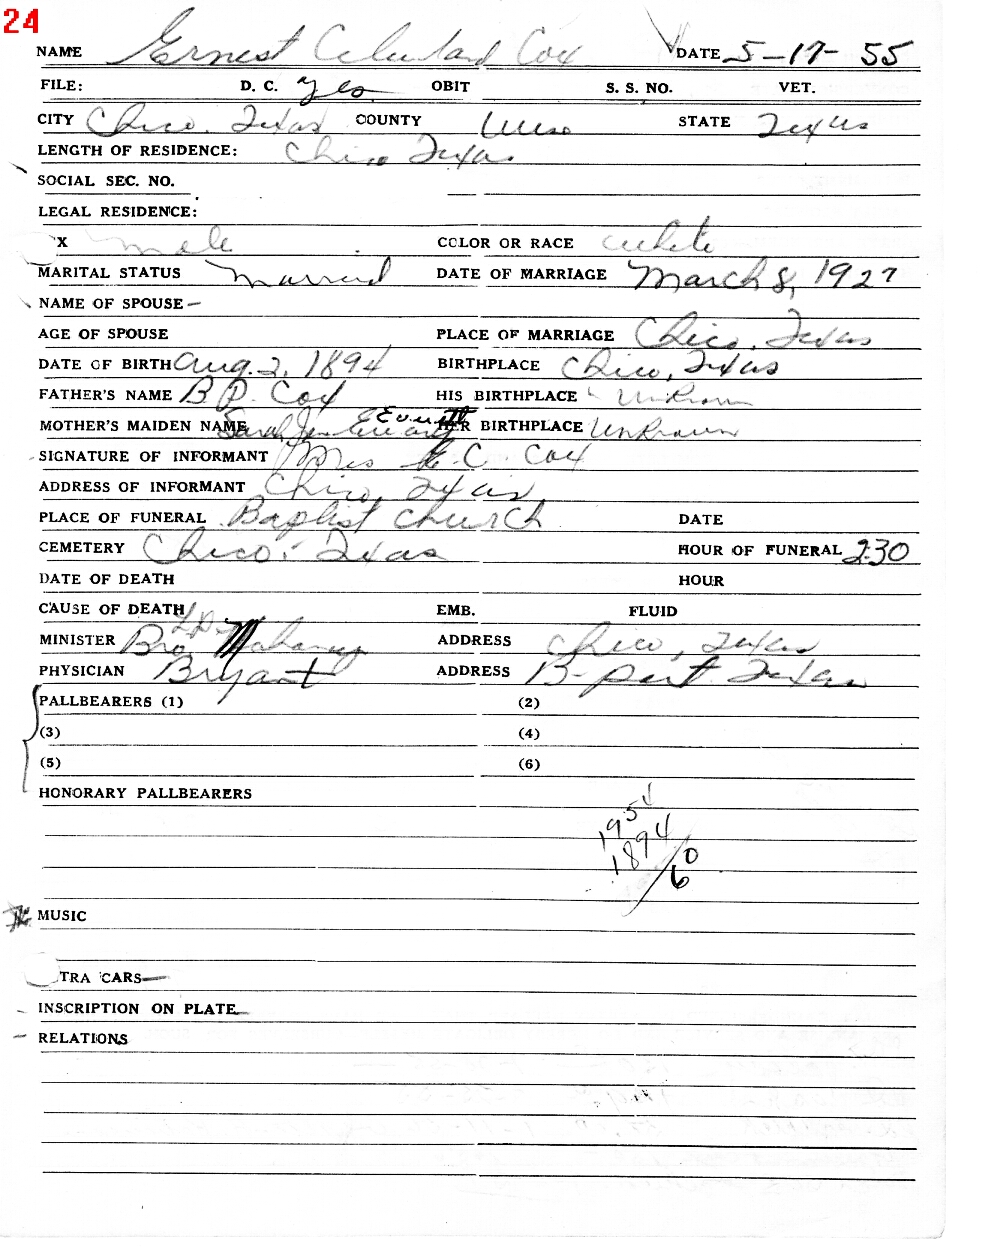 24
NAME Ernest Cleveland Cox DATE 5-17-55
FILE: D. C. yes OBIT S. S. NO. VET.
CITY Chico, Texas COUNTY Wise STATE Texas
LENGTH OF RESIDENCE: Chico Texas
SOCIAL SEC. NO.
LEGAL RESIDENCE:
X male COLOR OR RACE white
MARITAL STATUS Married DATE OF MARRIAGE March 8, 1927
NAME OF SPOUSE
AGE OF SPOUSE PLACE OF MARRIAGE Chico, Texas
DATE OF BIRTH Aug. 2, 1894 BIRTHPLACE Chico, Texas
FATHER'S NAME B. P. Cox HIS BIRTHPLACE Unknown
MOTHER'S MAIDEN NAME Sarah Everett HER BIRTHPLACE Unknown
SIGNATURE OF INFORMANT Mrs E. C. Cox
ADDRESS OF INFORMANT Chico, Texas
PLACE OF FUNERAL Baptist Church DATE
CEMETERY Chico, Texas HOUR OF FUNERAL 2:30
DATE OF DEATH HOUR
CAUSE OF DEATH EMB. FLUID
MINISTER Bro Mahaney ADDRESS Chico, Texas
PHYSICIAN Bryant ADDRESS B-port Texas
PALLBEARERS (1) (2)
(3) (4)
(5) (6)
HONORARY PALLBEARERS
1954
1894
60
MUSIC
TRA CARS
INSCRIPTION ON PLATE
RELATIONS